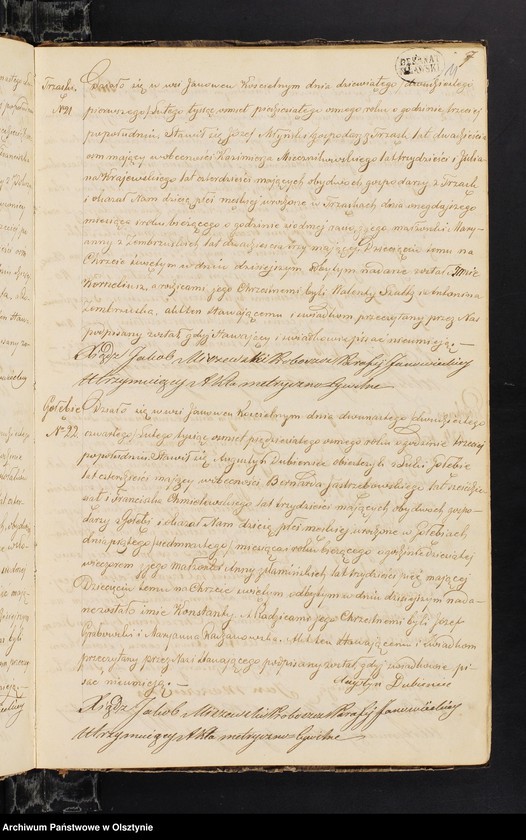 7
11
Trzaski
No 21
Działo się w wsi Janowcu Kościelnym dnia dziewiątego /:dwudziestego
pierwszego/ Lutego tysiąc ośmset pięćdziesiątego ósmego roku o godzinie trzeciej
popołudniu. Stawił się Józef Młyński Gospodarz z Trzask lat dwadzieścia
osm mający w obecności Kazimierza lat trzydzieści i Julia
na Krajewskiego lat czterdzieści mających obydwóch gospodarzy z Trzask
i okazał Nam dziecię płci męzkiej urodzone w Trzaskach dnia onegdajszego
miesiąca i roku bieżącego o godzinie siódmej rano z jego małżonki Mary-
anny z Zembrzuskich lat dwadzieścia trzy mającej. Dziecięciu temu na
Chrzcie świętym w dniu dzisiejszym odbytym nadane zostało Imie
Korneliusz, a rodzicami jego Chrzestnemi byli Walenty Szatty i Antonina
Zembrzuska, akt ten stawającemu i świadkom przeczytany przez Nas
podpisany został gdyż Stawający i świadkowie pisać nieumieją.—
Xiądz Jakob Mierzewski Proboszcz Parafij Janowieckiej
Utrzymujący Akta metryczno Cywilne
Gołębie
No 22.
Działo się w wsi Janowcu Kościelnym dnia dwunastego /dwudziestego
czwartego/ Lutego tysiąc ośmset pięćdziesiątego ósmego roku o godzinie trzeciej
popołudniu. Stawił się Augustyn Dubieniec z Gołębie
lat czterdzieści mający w obecności Bernarda Jastrzębowskiego lat
i Franciszka Chmielewskiego lat trzydzieści mających obydwóch gospo-
darzy z Gołębi i okazał Nam dziecię płci męzkiej urodzone w Gołębiach
dnia piątego /siedmnastego/ miesiąca i roku bieżącego o godzinie dziewiątej
wieczorem z jego małżonki Anny z lat trzydzieści pięć mającej
Dziecięciu temu na Chrzcie świętym odbytym w dniu dzisiejszym nada-
ne zostało imie Konstanty, a Rodzicami jego Chrzestnemi byli Józef
Grabowski i Maryanna Kadzanowska. Akt ten stawającemu i świadkom
przeczytany przez Nas i stawającego podpisany został gdyż świadkowie pi-
sać nieumieją.—
Augustyn Dubieniec
Xiądz Jakob Mierzewski Proboszcz Parafij Janowieckiej
Utrzymujący Akta metryczno Cywilne
Archiwum Państwowe w Olsztynie